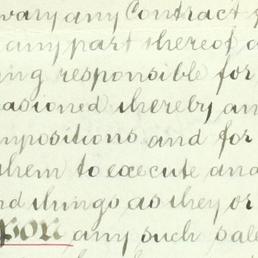 vary any Contract
any part thereof
ing responsible for
asioned thereby an
mpositions and for
them to execute and
nd things as they or
pon any such sale